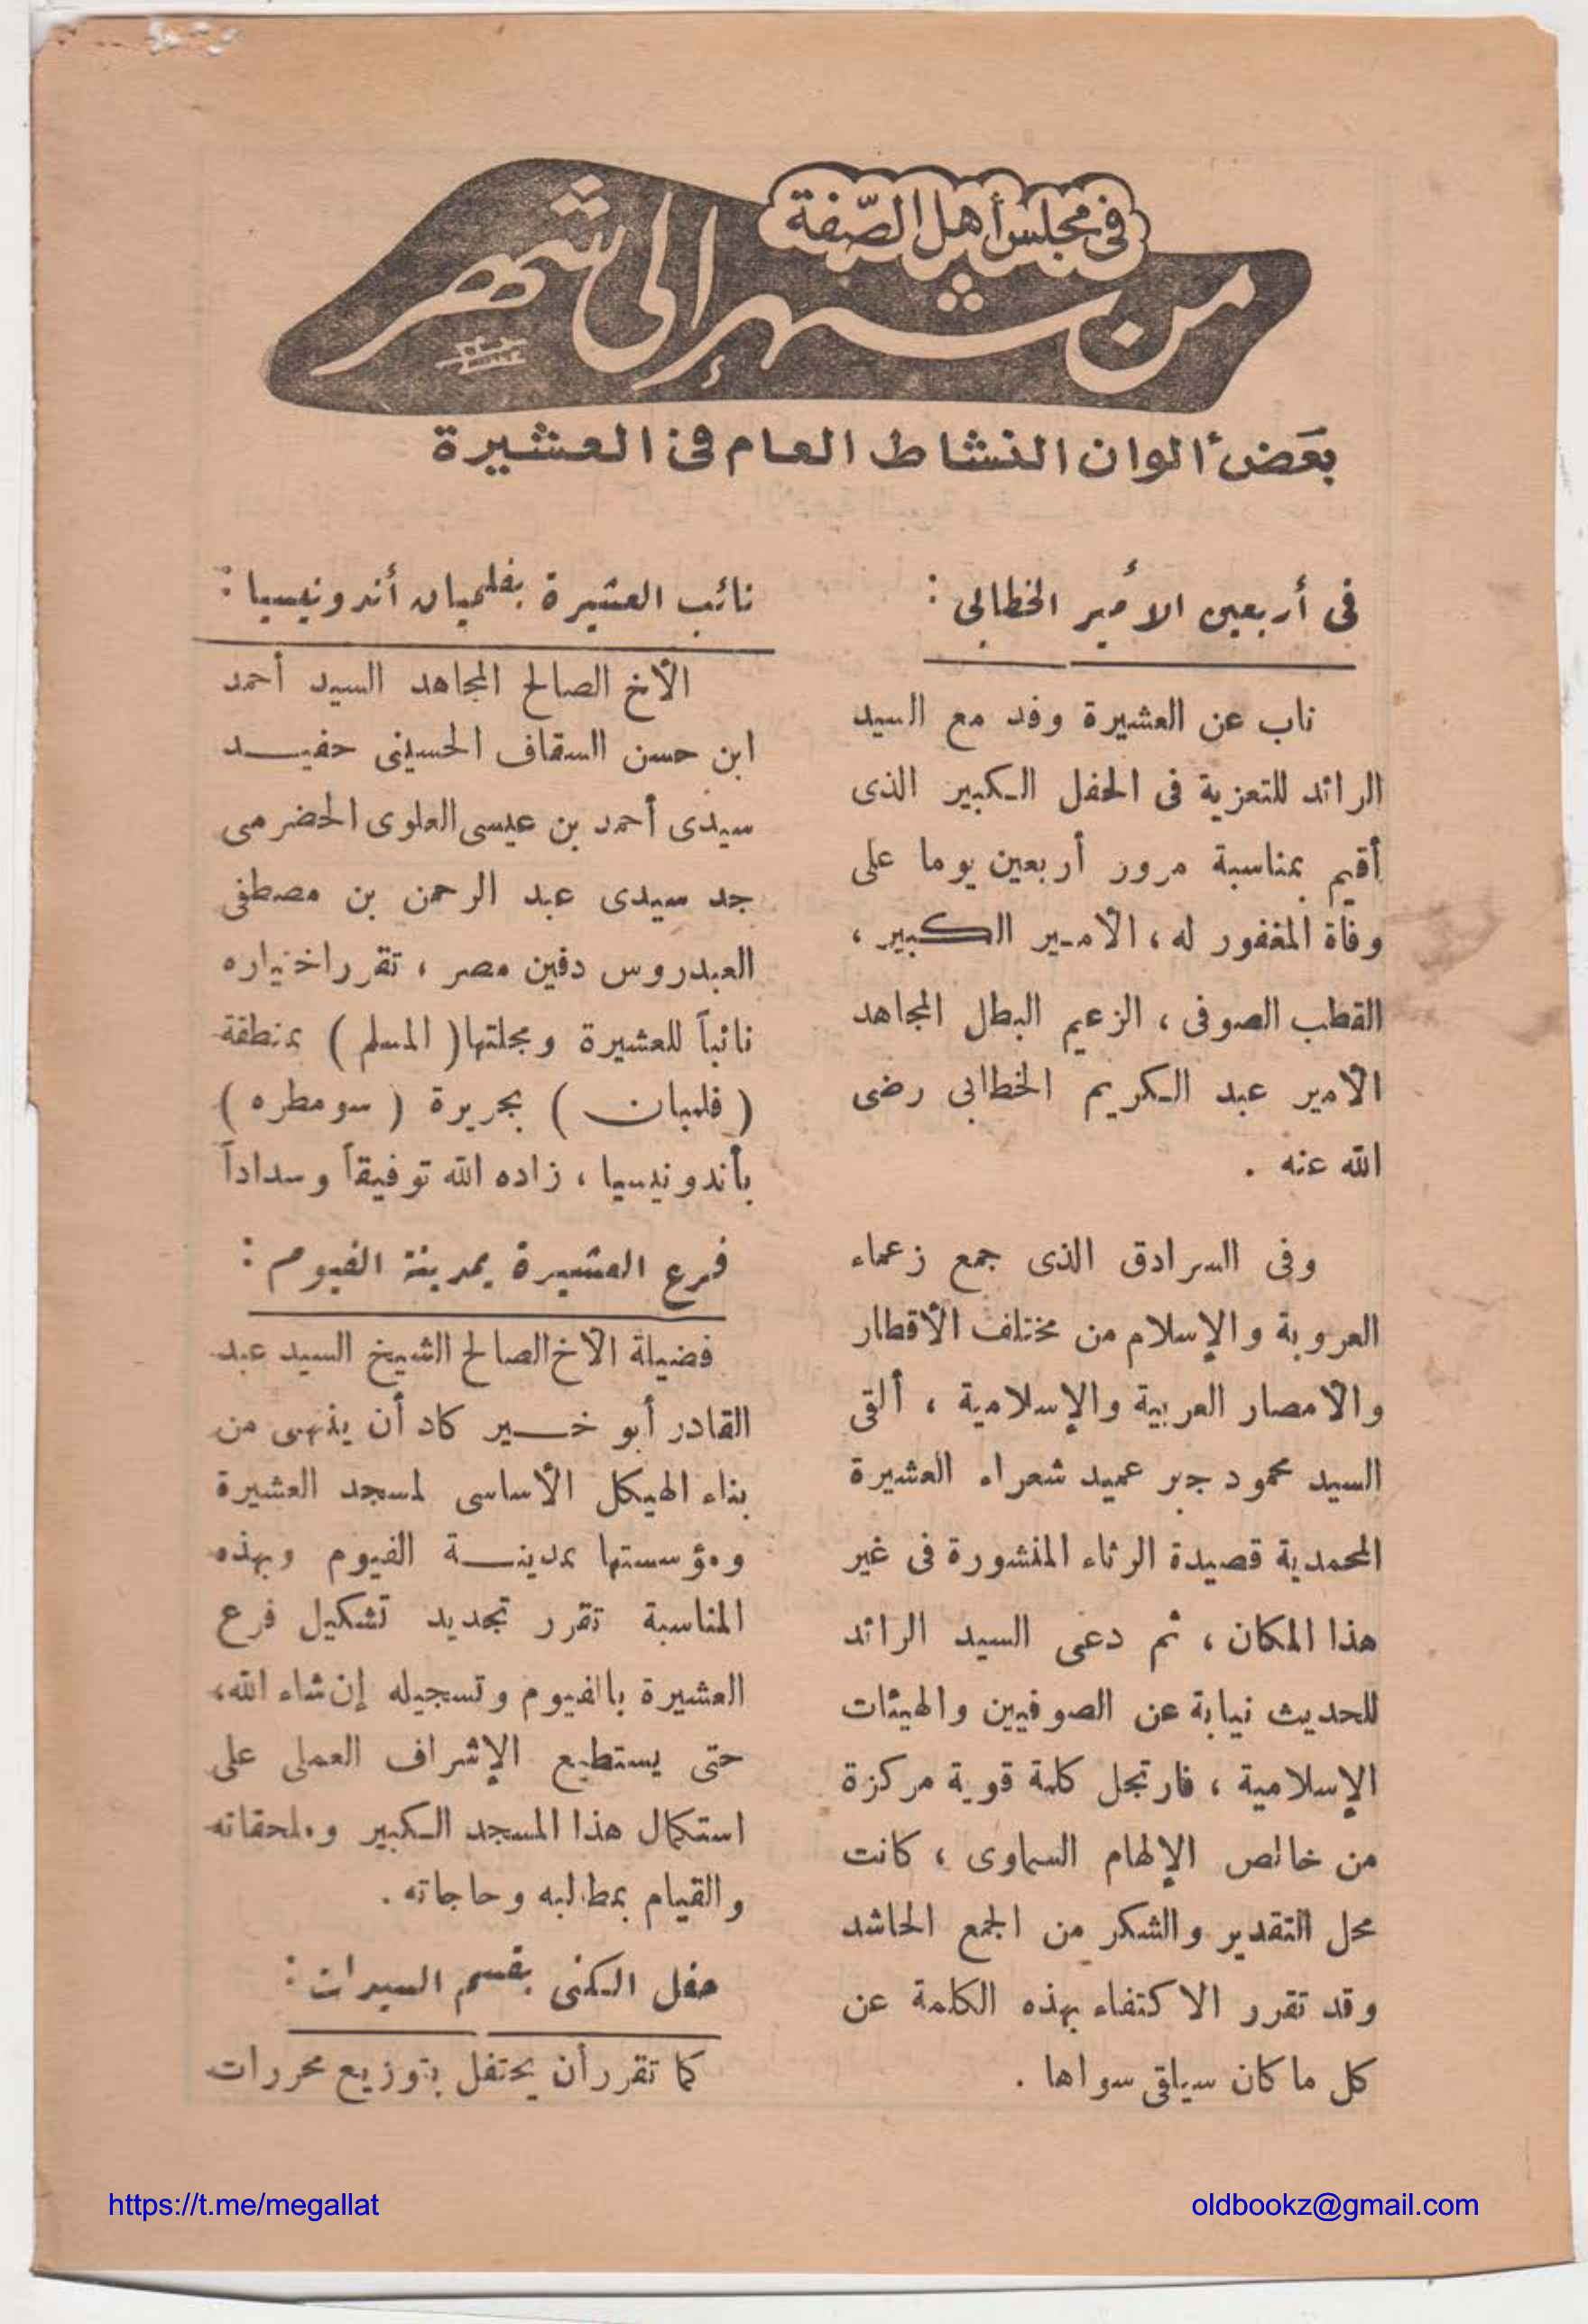 فى مجلس أهل الصّفة
من شهر إلى شهر
بعض ألوان النشاط العام فى العشيرة
فى أربعين الأمير الخطابى :
ناب عن العشيرة وفد مع السيد
الرائد للتعزية فى الحفل الكبير الذى
أقيم بمناسبة مرور أربعين يوما على
وفاة المغفور له ، الأمير الكبير ،
القطب الصوفى ، الزعيم البطل المجاهد
الأمير عبد الكريم الخطابى رضى
الله عنه .
وفى السرادق الذى جمع زعماء
العروبة والإسلام من مختلف الأقطار
والأمصار العربية والإسلامية ، ألقى
السيد محمود جبر عميد شعراء العشيرة
المحمدية قصيدة الرثاء المنشورة فى غير
هذا المكان ، ثم دعى السيد الرائد
للحديث نيابة عن الصوفيين والهيئات
الإسلامية ، فارتجل كلمة قوية مركزة
من خالص الإلهام السماوى ، كانت
محل التقدير والشكر من الجمع الحاشد
وقد تقرر الاكتفاء بهذه الكلمة عن
كل ما كان سياقى سواها .
نائب العشيرة بفلمبان أندونيسيا :
الأخ الصالح المجاهد السيد أحمد
ابن حسن السقاف الحسينى حفيد
سيدى أحمد بن عيسى العلوى الحضرمى
جد سيدى عبد الرحمن بن مصطفى
العيدروس دفين مصر ، تقرر اختياره
نائباً للعشيرة ومجلتها ( المسلم ) بمنطقة
( فلمبان ) بجريرة ( سومطره )
بأندونيسيا ، زاده الله توفيقاً وسداداً
فرع العشيرة بمدينة الفيوم :
فضيلة الأخ الصالح الشيخ السيد عبد
القادر أبو خير كاد أن ينهى من
بناء الهيكل الأساسى لمسجد العشيرة
ومؤسستها بمدينة الفيوم وبهذه
المناسبة تقرر تجديد تشكيل فرع
العشيرة بالفيوم وتسجيله إن شاء الله،
حتى يستطيع الإشراف العملى على
استكمال هذا المسجد الكبير وملحقاته
والقيام بمطالبه وحاجاته .
حفل الكنى بقسم السيدات :
كما تقرر أن يحتفل بتوزيع محررات
https://t.me/megallat
oldbookz@gmail.com